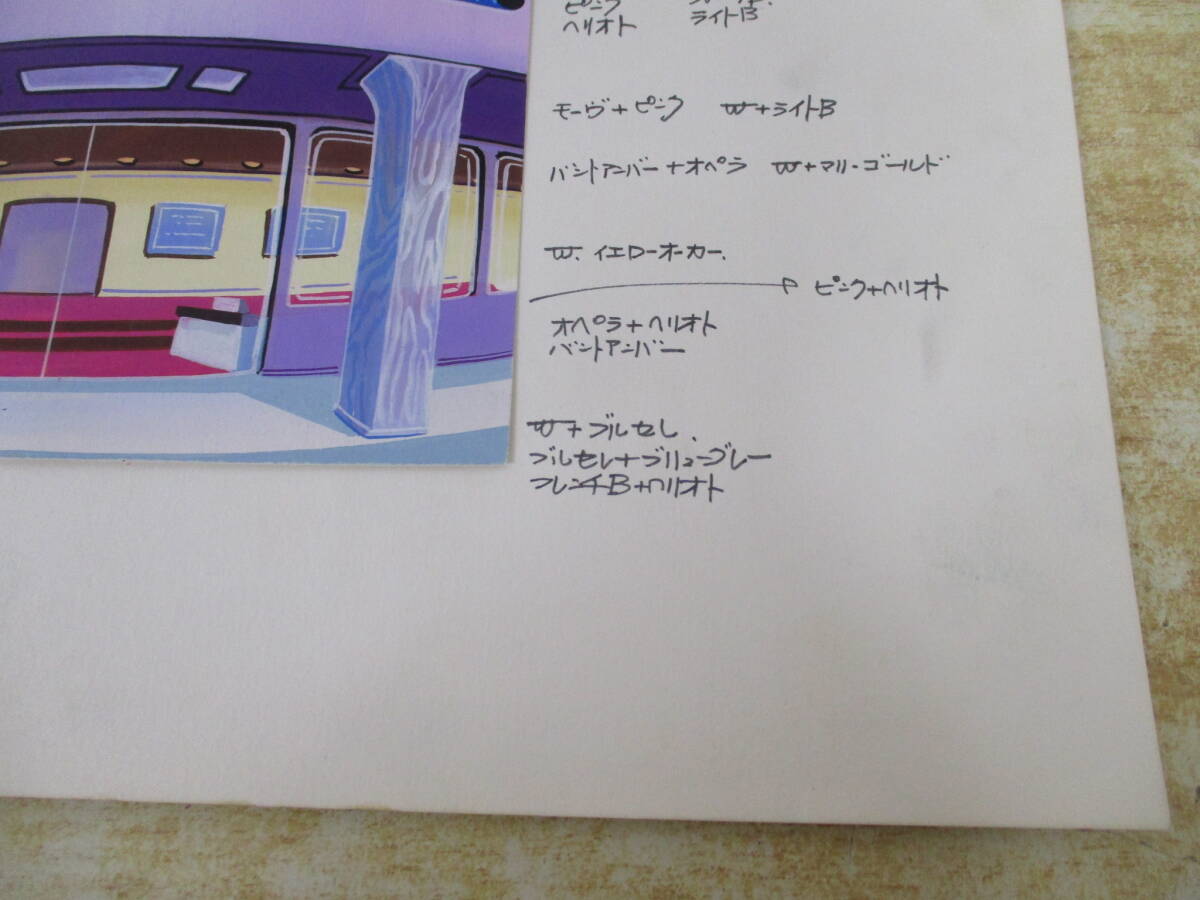 ピンク
ヘリオト ライトB
モーヴ+ピンク W+ライトB
バントアンバー+オペラ W+マリーゴールド
W. イエローオーカー.
ピンク+ヘリオト
オペラ+ヘリオト
バントアンバー
W+ブルセレ.
ブルセレ+ブリューグレー
フレンチB+ヘリオト